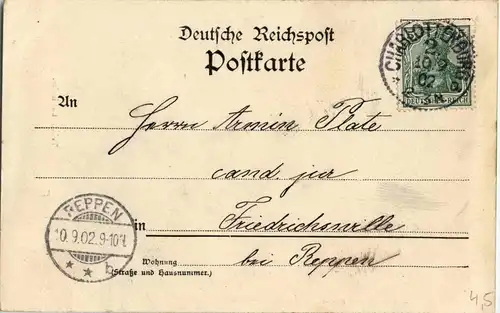 Deutsche Reichspost
Postkarte
CHARLOTTENBURG
2
10 9
02
N.
DEUTSCHES REICH
An
Herrn Armin Plate
cand. jur
in
Friedrichswille
bei Reppen
REPPEN
10.9.02.9-10V.
* * b
Wohnung
(Straße und Hausnummer.)
4,5